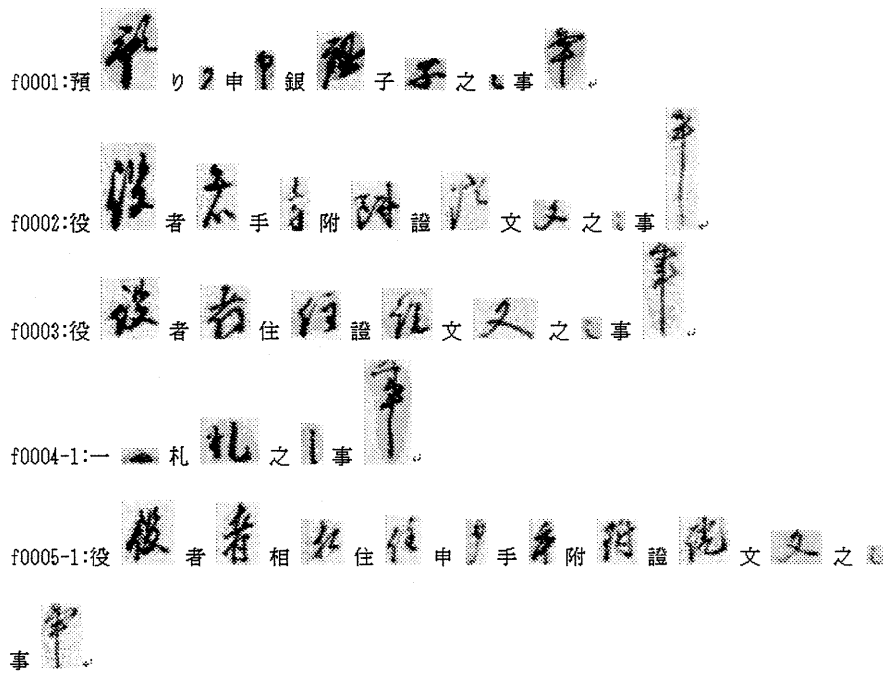 f0001:預り申銀子之事
f0002:役者手附證文之事
f0003:役者住證文之事
f0004-1:一札之事
f0005-1:役者相住申手附證文之
事